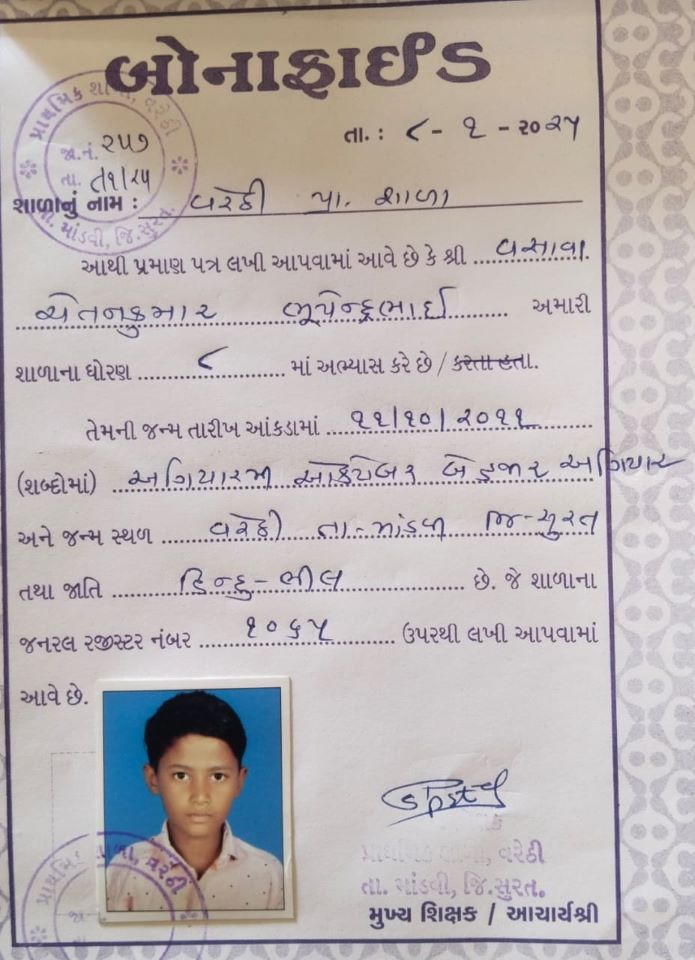 બોનાફાઈડ
પ્રાથમિક શાળા, વરેઠી
જા.નં. ૨૫૭
તા. ૮/૧/૨૫
તા. માંડવી, જિ.સુરત.
તા. : ૮ - ૧ - ૨૦૨૫
શાળાનું નામ : વરેઠી પ્રા. શાળા
આથી પ્રમાણ પત્ર લખી આપવામાં આવે છે કે શ્રી વસાવા
ચેતનકુમાર ભૂપેન્દ્રભાઈ અમારી
શાળાના ધોરણ ૮ માં અભ્યાસ કરે છે / કરતા હતા.
તેમની જન્મ તારીખ આંકડામાં ૧૧/૧૦/૨૦૧૧
(શબ્દોમાં) અગિયારમી ઓક્ટોબર બે હજાર અગિયાર
અને જન્મ સ્થળ વરેઠી તા-માંડવી જિ-સુરત
તથા જાતિ હિન્દુ-ભીલ છે. જે શાળાના
જનરલ રજીસ્ટર નંબર ૧૦૬૫ ઉપરથી લખી આપવામાં
આવે છે.
પ્રાથમિક શાળા, વરેઠી
જા.
પ્રાથમિક શાળા, વરેઠી
તા. માંડવી, જિ.સુરત.
મુખ્ય શિક્ષક / આચાર્યશ્રી